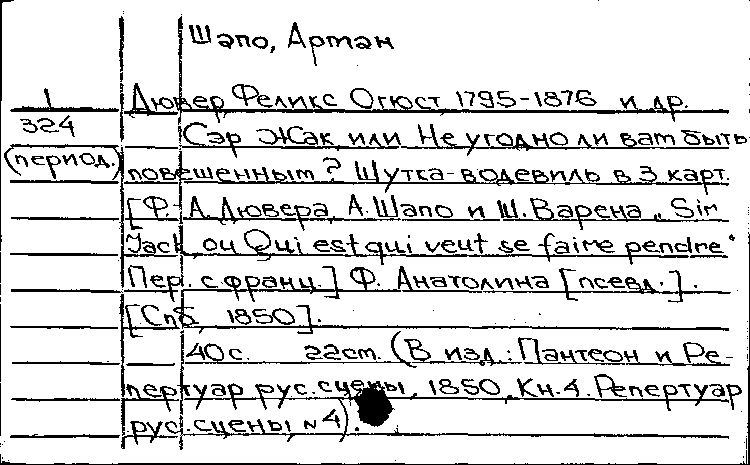 Шапо, Арман
1 Дювер, Феликс Огюст, 1795-1876 и др.
324 Сэр Жак, или Не угодно ли вам быть
(период.) повешенным? Шутка-водевиль в 3 карт.
[Ф.-А. Дювера, А. Шапо и Ш. Варена „Sir
Jack, ou Qui est qui veut se faire pendre“
Пер. с франц.] Ф. Анатолина [псевд.].
[Спб, 1850].
40 с. 22 cm. (В изд.: Пантеон и Ре-
пертуар рус. сцены, 1850, Кн. 4. Репертуар
рус. сцены, №4).